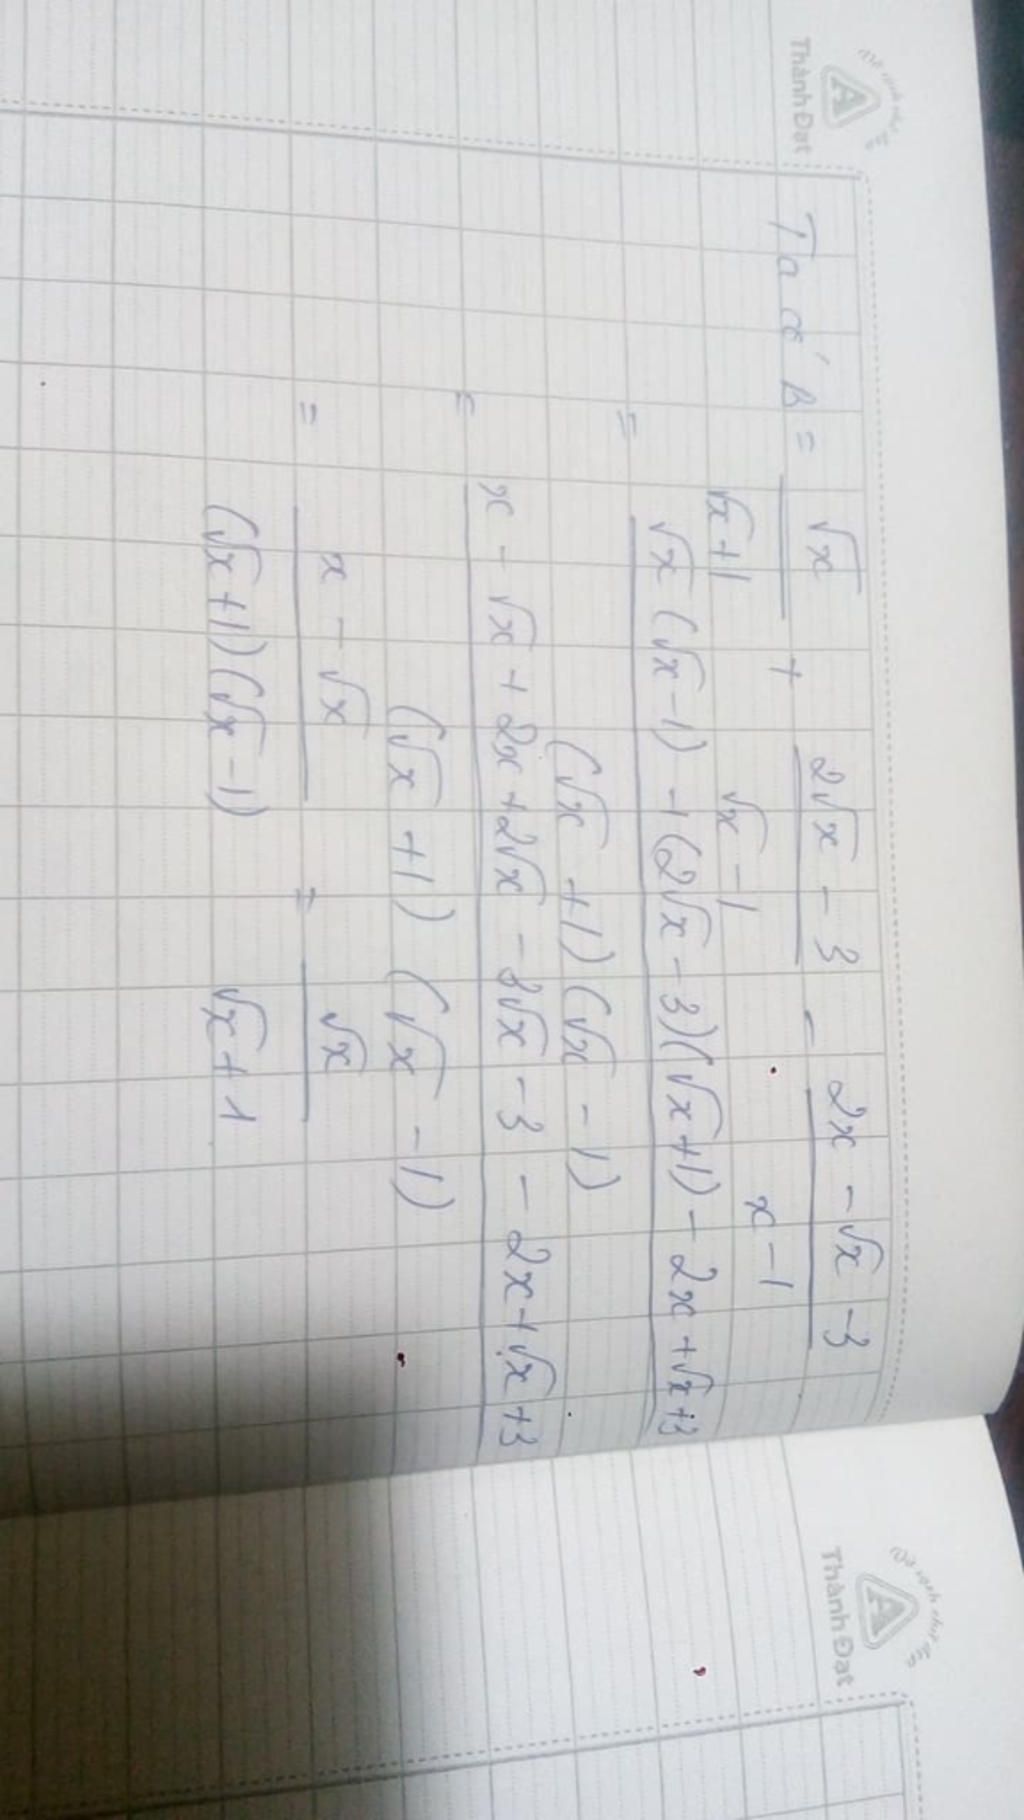 Thành Đạt
Ta có B = √x / (√x + 1) + (2√x - 3) / (√x - 1) - (2x - √x - 3) / (x - 1)
= (√x (√x - 1) + (2√x - 3)(√x + 1) - 2x + √x + 3) / ((√x + 1)(√x - 1))
= (x - √x + 2x + 2√x - 3√x - 3 - 2x + √x + 3) / ((√x + 1)(√x - 1))
= (x - √x) / ((√x + 1)(√x - 1)) = √x / (√x + 1)
Thành Đạt